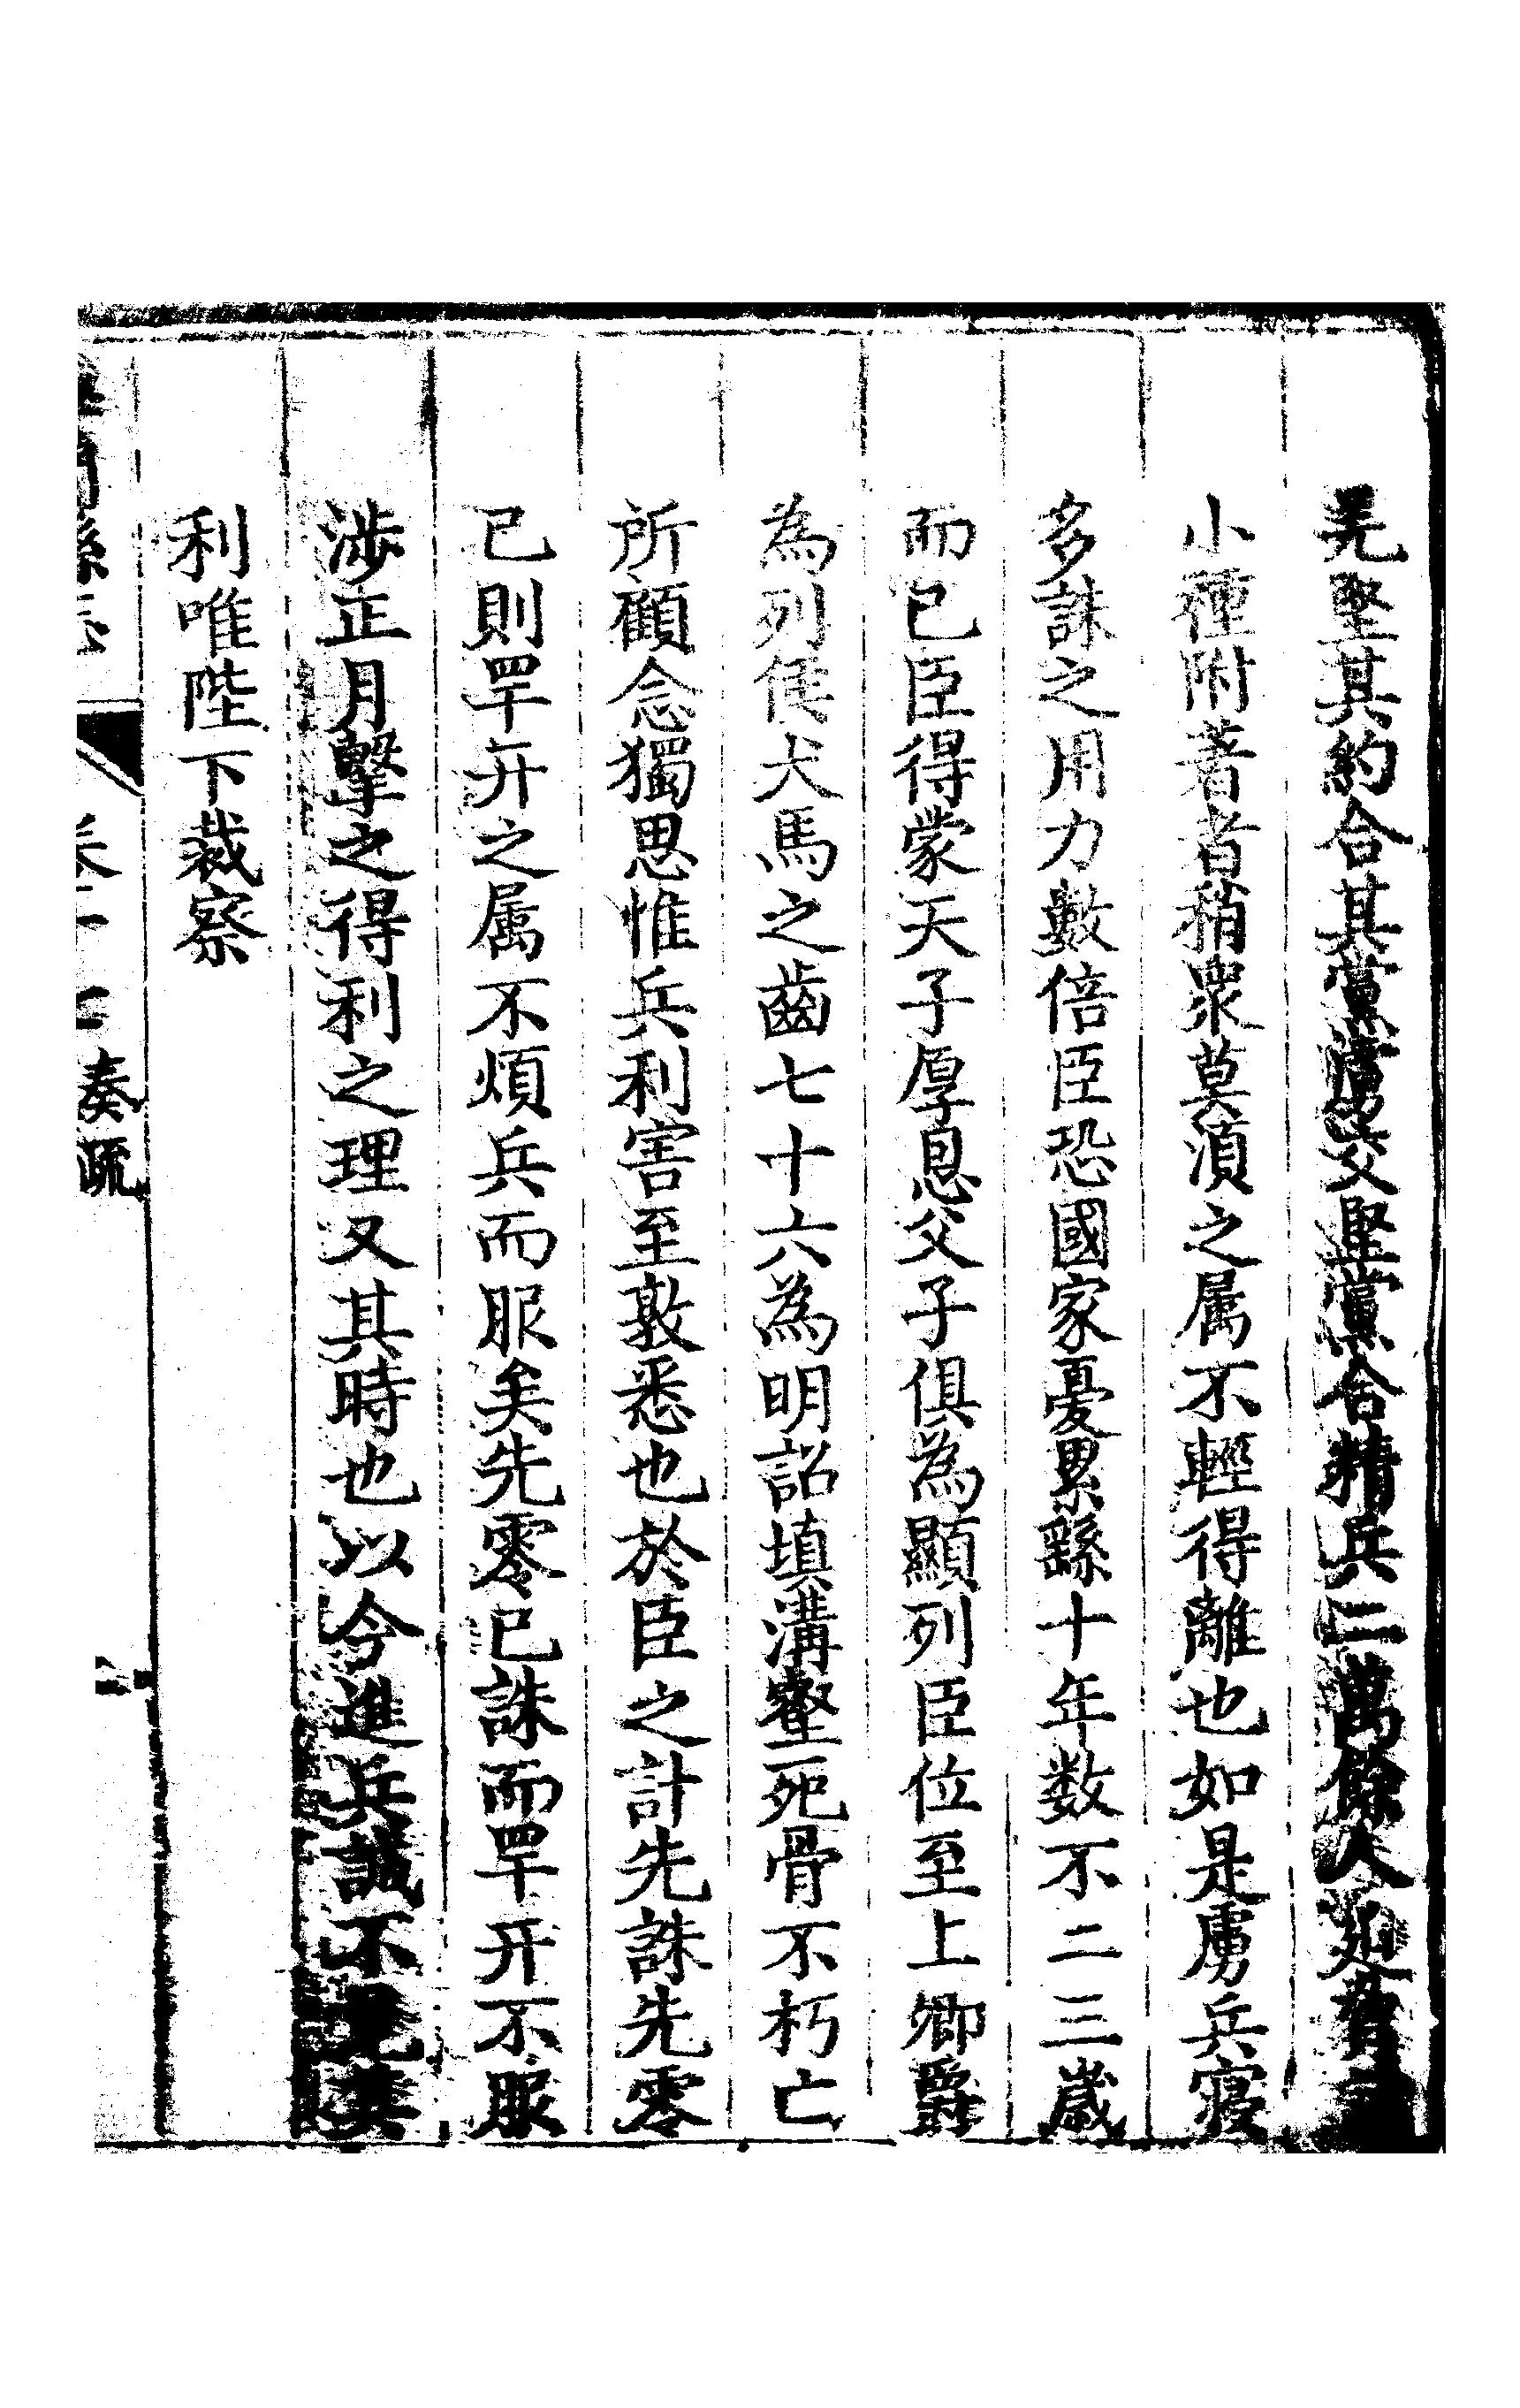 羌堅其約合其黨虜交堅黨合精兵二萬餘人迫脅諸
小種附著者稍衆莫湏之属不輕得離也如是虜兵寖
多誅之用力數倍臣恐國家憂累繇十年数不二三歳
而已臣得蒙天子厚恩父子俱為顯列臣位至上卿爵
為列侯犬馬之齒七十六為明詔填溝壑死骨不朽亡
所顧念獨思惟兵利害至敦悉也於臣之計先誅先零
已則䍐幵之属不煩兵而服矣先零已誅而䍐幵不服
涉正月擊之得利之理又其時也以今進兵誠不見其
利唯陛下裁察
奏疏